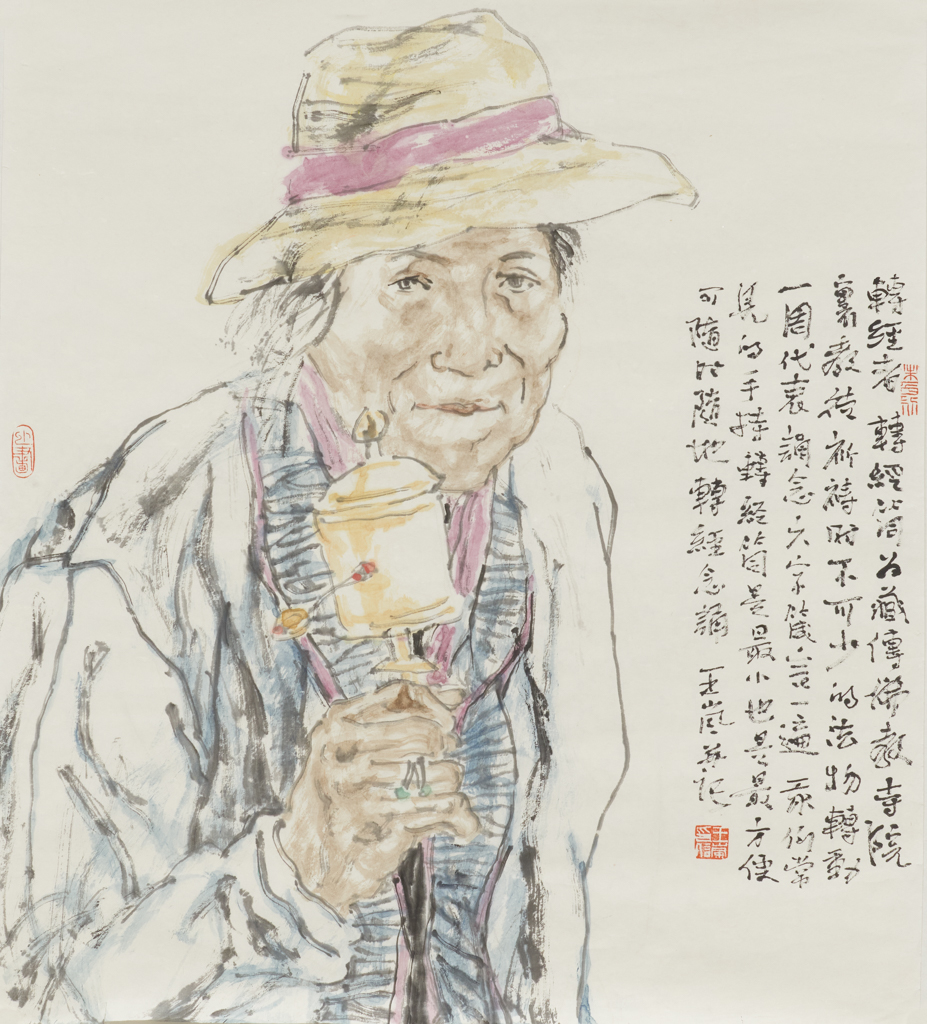 轉經者 轉經筒为藏傳佛教寺院
裏教徒祈禱时不可少的法物轉動
一周代表誦念六字箴言一遍 我们常
見的手持轉经筒是最小也是最方便
可隨时隨地轉經念誦 王嵐并记